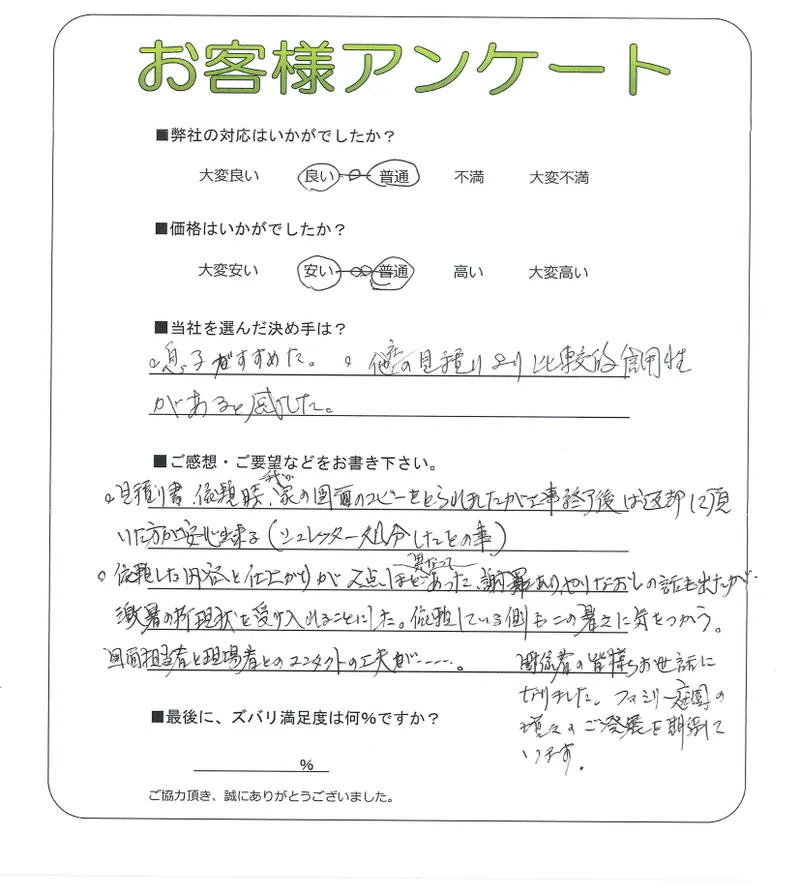 お客様アンケート
■弊社の対応はいかがでしたか？
大変良い 良い 普通 不満 大変不満
■価格はいかがでしたか？
大変安い 安い 普通 高い 大変高い
■当社を選んだ決め手は？
。息子がすすめた。 。他店の見積りより比較的信用性
があると感じた。
■ご感想・ご要望などをお書き下さい。
。見積り書、依頼時、我が家の図面のコピーをとられましたが工事終了後は返却して頂
いた方が安心出来る(シュレッター処分したとの事)
。依頼した内容と仕上がりが2点ほど異なってあった、謝罪ありやりなおしの話も出たが
激暑の折現状を受け入れることにした。依頼している側もこの暑さに気をつかう。
図面担当者と現場者とのコンタクトの工夫が-----。
関係者の皆様お世話に
なりました。ファミリー庭園の
増々のご発展を期待して
います。
■最後に、ズバリ満足度は何%ですか？
%
ご協力頂き、誠にありがとうございました。